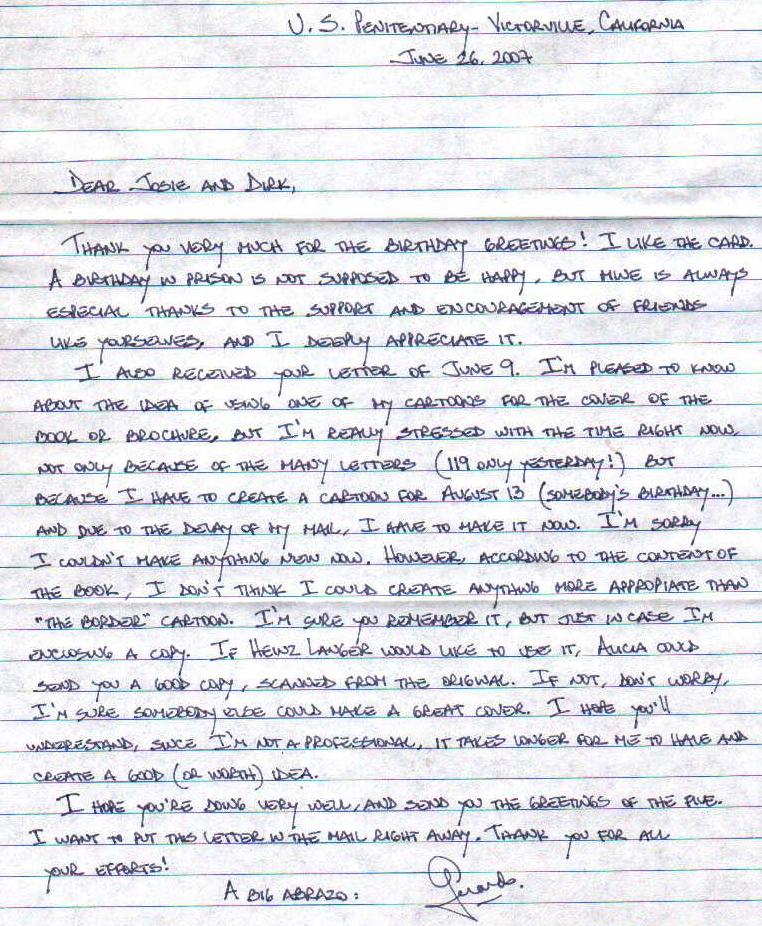 U.S. PENITENTIARY - VICTORVILLE, CALIFORNIA
JUNE 26, 2007
DEAR JOSIE AND DIRK,
THANK YOU VERY MUCH FOR THE BIRTHDAY GREETINGS! I LIKE THE CARD.
A BIRTHDAY IN PRISON IS NOT SUPPOSED TO BE HAPPY, BUT MINE IS ALWAYS
ESPECIAL THANKS TO THE SUPPORT AND ENCOURAGEMENT OF FRIENDS
LIKE YOURSELVES, AND I DEEPLY APPRECIATE IT.
I ALSO RECEIVED YOUR LETTER OF JUNE 9. I'M PLEASED TO KNOW
ABOUT THE IDEA OF USING ONE OF MY CARTOONS FOR THE COVER OF THE
BOOK OR BROCHURE, BUT I'M REALLY STRESSED WITH THE TIME RIGHT NOW,
NOT ONLY BECAUSE OF THE MANY LETTERS (119 ONLY YESTERDAY!) BUT
BECAUSE I HAVE TO CREATE A CARTOON FOR AUGUST 13 (SOMEBODY'S BIRTHDAY...)
AND DUE TO THE DELAY OF MY MAIL, I HAVE TO MAKE IT NOW. I'M SORRY
I COULDN'T MAKE ANYTHING NEW NOW. HOWEVER, ACCORDING TO THE CONTENT OF
THE BOOK, I DON'T THINK I COULD CREATE ANYTHING MORE APPROPIATE THAN
"THE BORDER" CARTOON. I'M SURE YOU REMEMBER IT, BUT JUST IN CASE I'M
ENCLOSING A COPY. IF HEINZ LANGER WOULD LIKE TO USE IT, ALICIA COULD
SEND YOU A GOOD COPY, SCANNED FROM THE ORIGINAL. IF NOT, DON'T WORRY,
I'M SURE SOMEBODY ELSE COULD MAKE A GREAT COVER. I HOPE YOU'll
UNDERESTAND, SINCE I'M NOT A PROFESSIONAL, IT TAKES LONGER FOR ME TO HAVE AND
CREATE A GOOD (OR WORTH) IDEA.
I HOPE YOU'RE DOING VERY WELL, AND SEND YOU THE GREETINGS OF THE FIVE.
I WANT TO PUT THIS LETTER IN THE MAIL RIGHT AWAY. THANK YOU FOR ALL
YOUR EFFORTS!
A BIG ABRAZO: Gerardo.